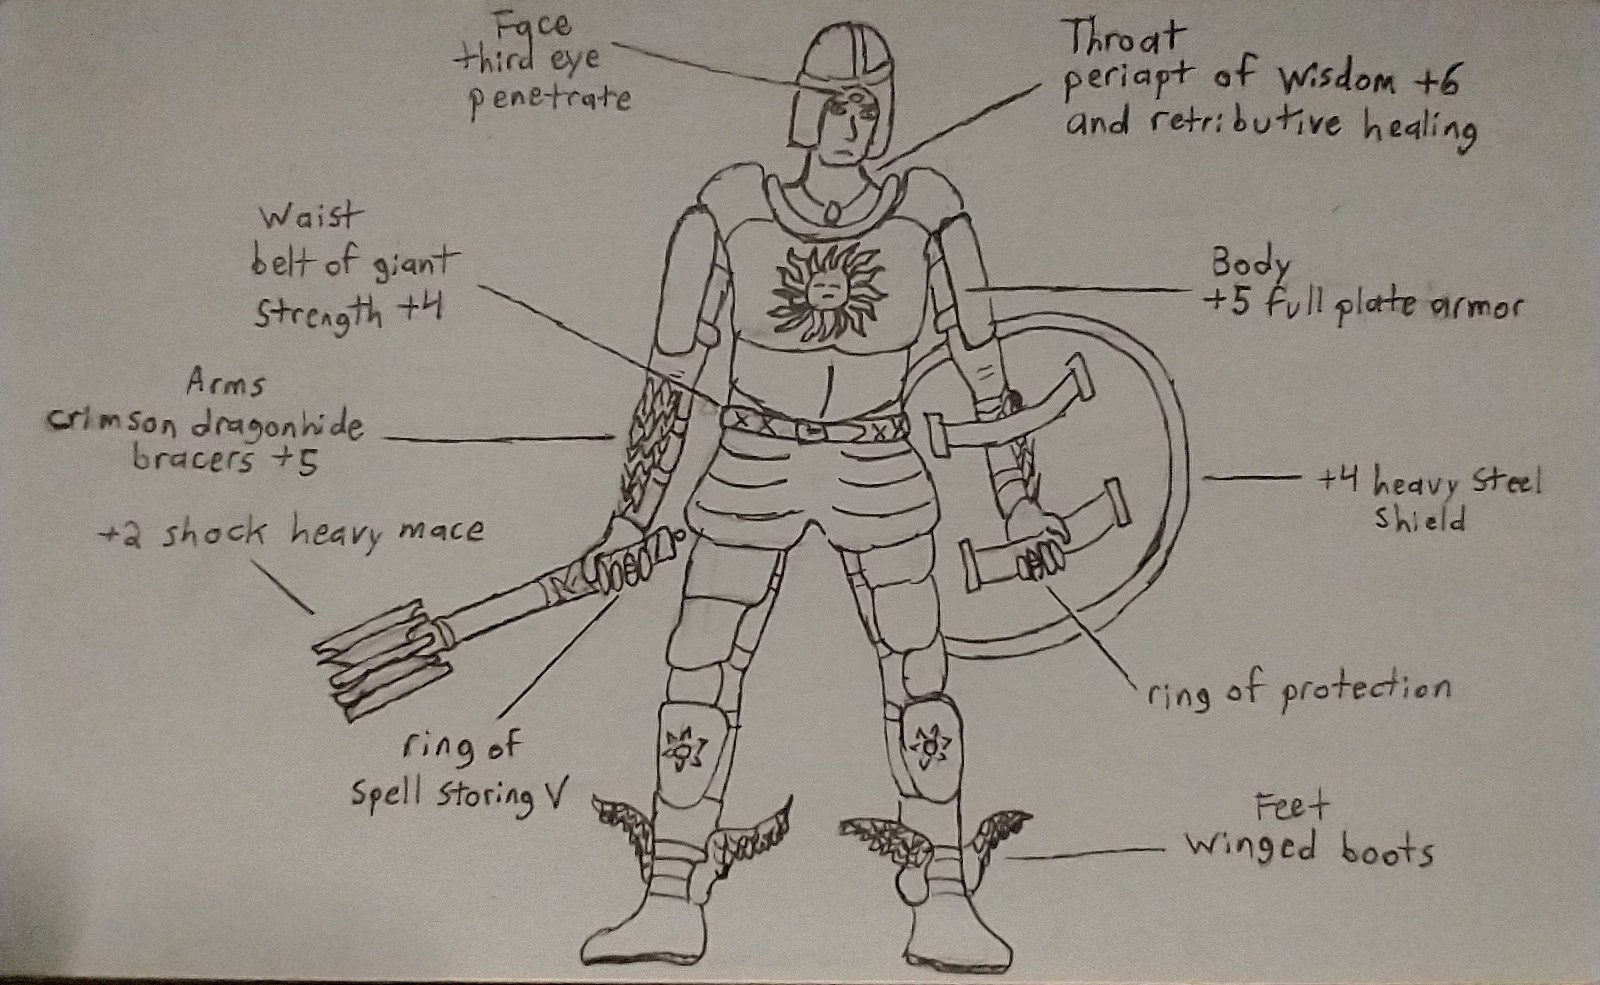 Face
third eye
penetrate
Throat
periapt of wisdom +6
and retributive healing
Waist
belt of giant
strength +4
Body
+5 full plate armor
Arms
crimson dragonhide
bracers +5
+4 heavy steel
shield
+2 shock heavy mace
ring of protection
ring of
spell storing V
Feet
winged boots